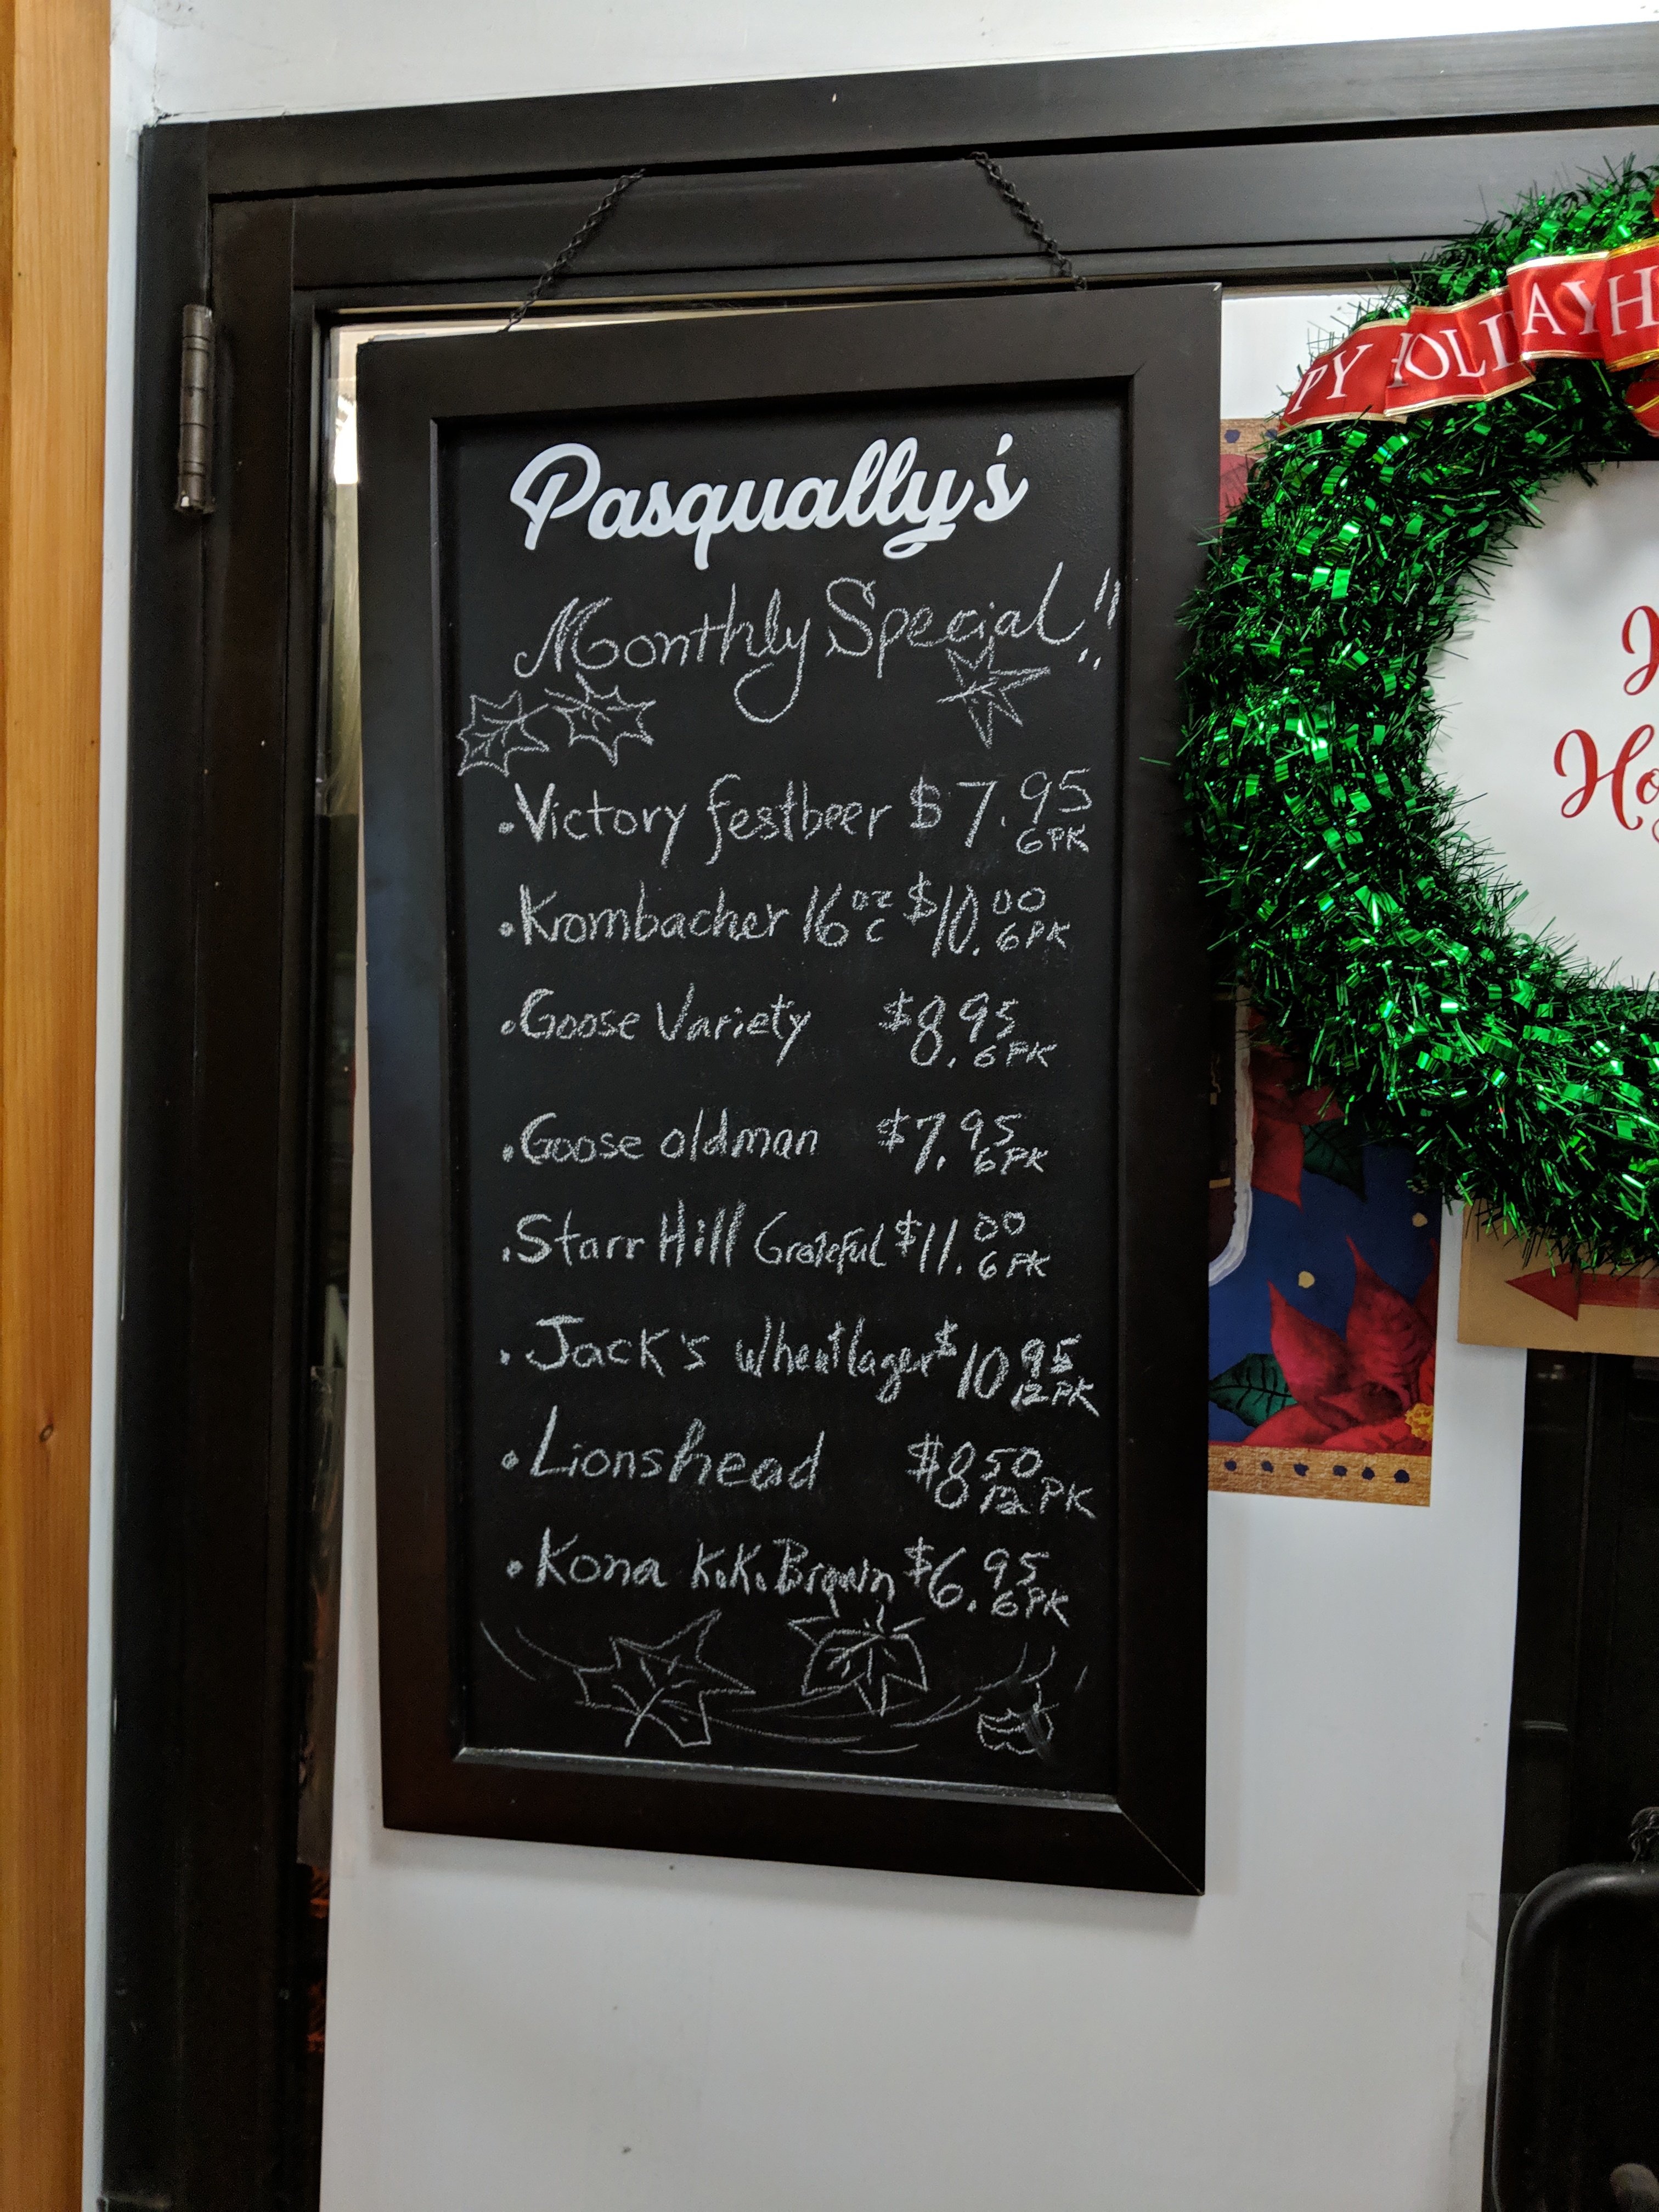 Pasqually's
Monthly Special!!
• Victory festbeer $7.95 6PK
• Krombacher 16 oz C $10.00 6PK
• Goose Variety $8.95 6PK
• Goose oldman $7.95 6PK
• Starr Hill Grateful $11.00 6PK
• Jack's wheatlager $10 95 12PK
• Lionshead $8 50 12 PK
• Kona K.K. Brown $6.95 6PK
PY HOLIDAY H
Ho